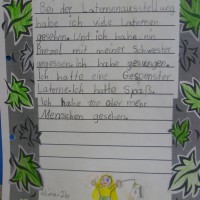 Bei der Laternenausstellung
habe ich viele Laternen
gesehen. Und ich habe ein
Brezel mit meiner Schwester
gegessen. Ich habe gesungen.
Ich hatte eine Gespenster
Laterne. Ich hatte Spaß.
Ich habe 100 oder mehr
Menschen gesehen.